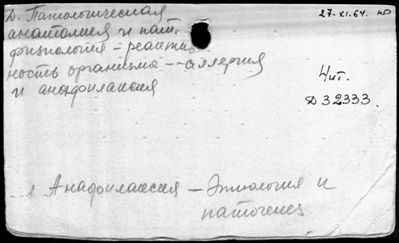 Д. Патологическая
анатомия и пат.
физиология – реактив
ность организма – аллергия
и анафилаксия
27.XI.64.
Чит.
Д32333.
Анафилаксия – Этиология и
патогенез